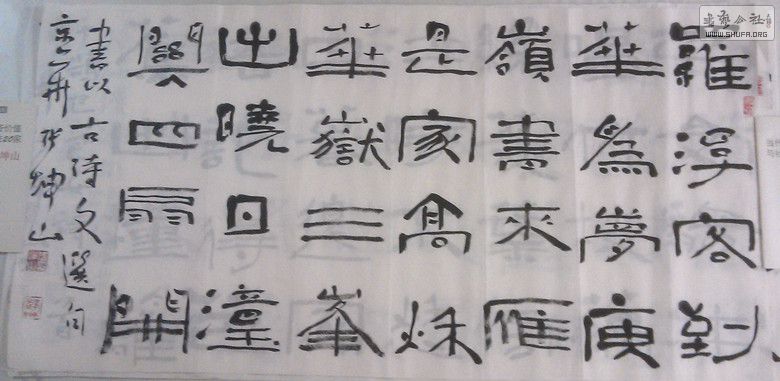 羅浮客到
華為夢庾
嶺書來雁
是家高秋
華嶽三峯
出曉日潼
關四扇開
書以古诗文選句
京華张坤山
书艺公社
WWW.SHUFA.ORG
坤山